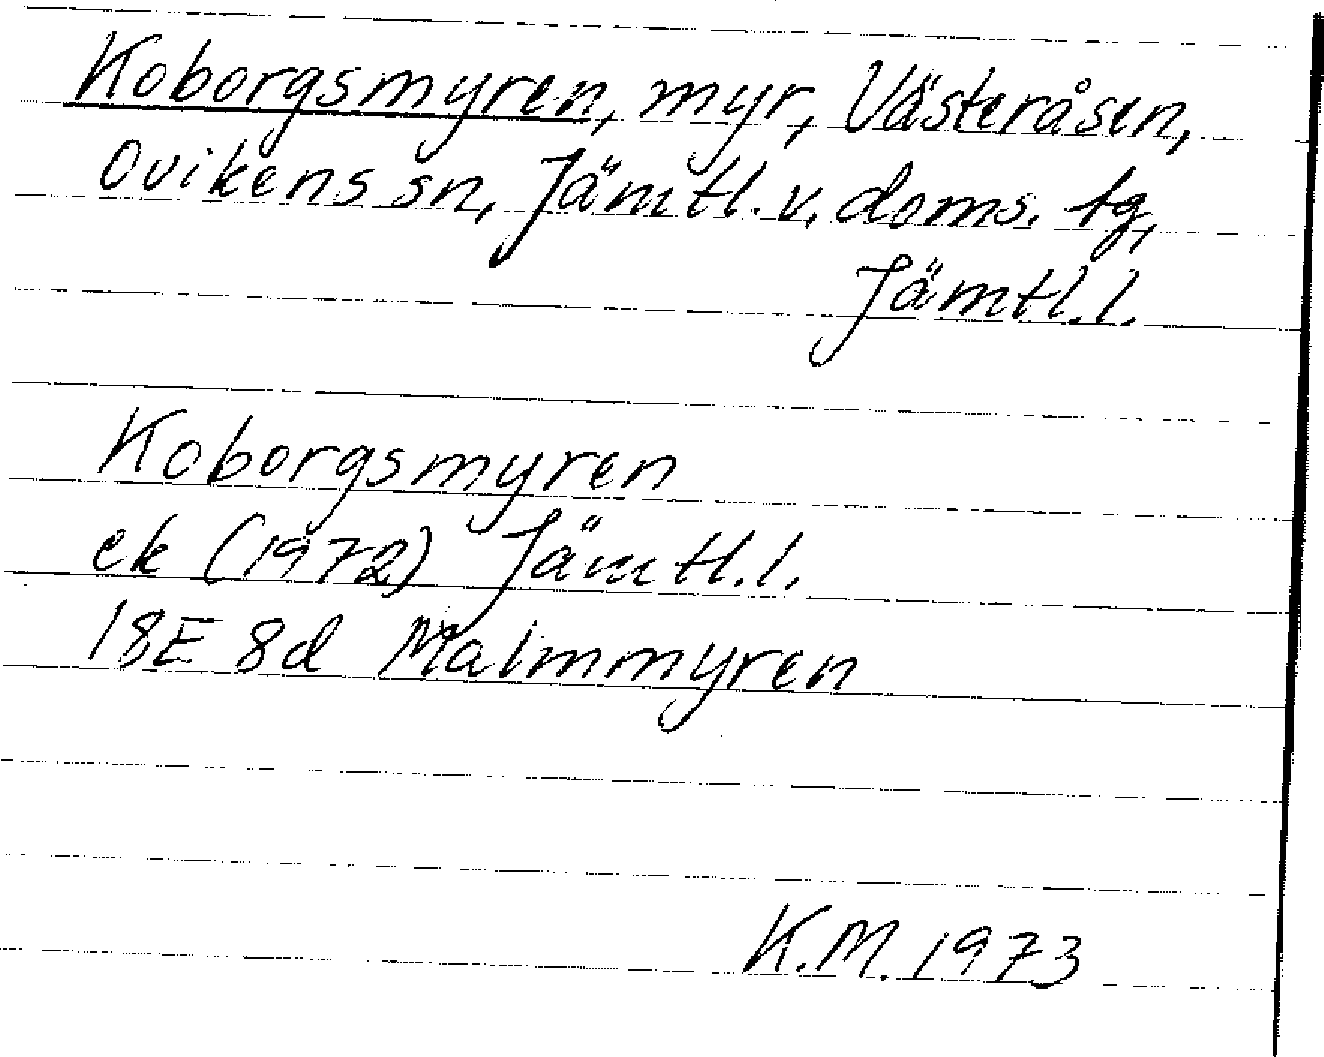 Koborgsmyren, myr, Västeråsen,
Ovikens sn, Jämtl. v. doms. tg,
Jämtl.l.
Koborgsmyren
ek (1972) Jämtl.l.
18E 8d Malmmyren
K.M. 1973